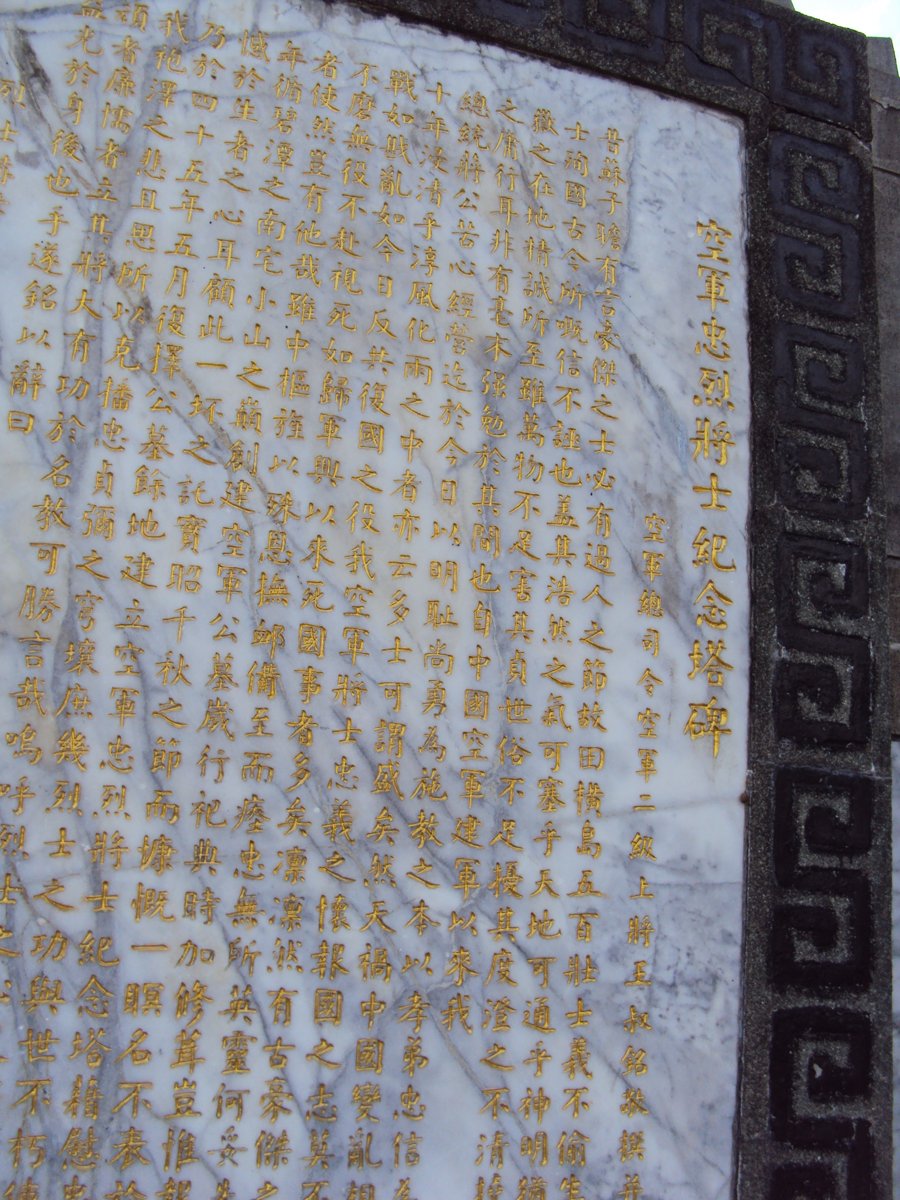 空軍忠烈將士紀念塔碑
空軍總司令空軍二級上將王叔銘敬撰并
昔蘇子瞻有言豪傑之士必有過人之節故田橫島五百壯士義不偷生
士殉國古今所嘅信不誣也蓋其浩然之氣可塞乎天地可通乎神明猶
徵之在地精誠所至雖萬物不足害其貞世俗不足擾其度澄之不清
之庸行耳非有毫末強勉於其間也自中國空軍建軍以來我
總統蔣公苦心經營迄於今日以明耻尚勇為施教之本以孝弟忠信為
十年浸清乎淳風化雨之中者亦云多士可謂盛矣然天禍中國變亂相
戰如戡亂如今日反共復國之役我空軍將士忠義之懷報國之志莫不
不磨無役不赴視死如歸軍興以來死國事者多矣凜凜然有古豪傑之
者使然豈有他哉雖中樞旌以殊恩撫卹備至而瘞忠無所英靈何妥
年循碧潭之南宅小山之巔創建空軍公墓歲行祀典時加修葺豈惟報
憾於生者之心耳顧此一坏之託實昭千秋之節而慷慨一瞑名不表於
乃於四十五年五月復擇公墓餘地建立空軍忠烈將士紀念塔藉慰忠
我袍澤之悲且思所以克播忠貞彌之穹壤庶幾烈士之功與世不朽
頑者廉懦者立其將大有功於名教可勝言哉嗚呼烈士之
益光於身後也乎遂銘以辭曰
烈士